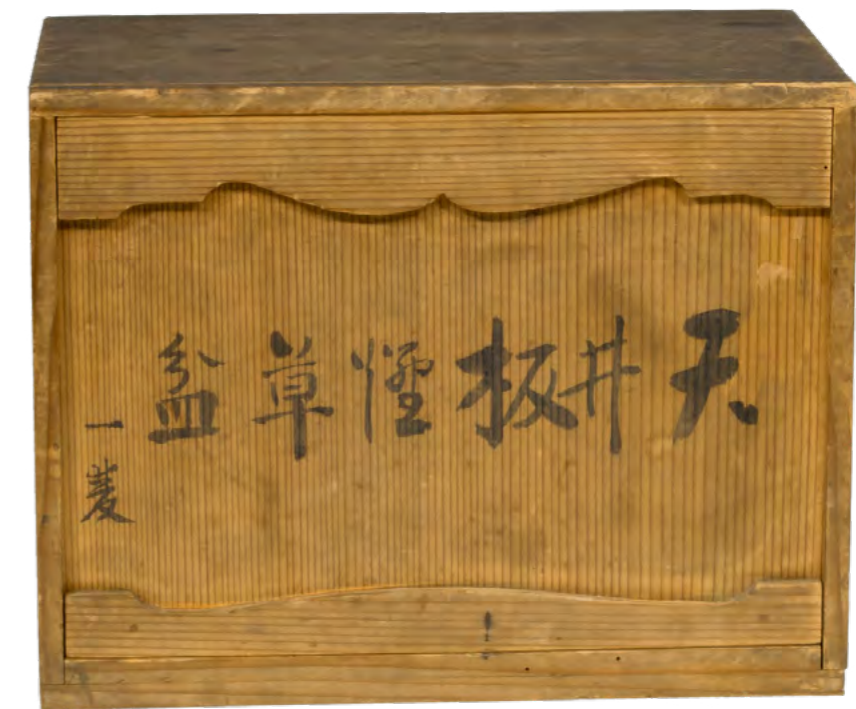 天井板煙草盆
一菱